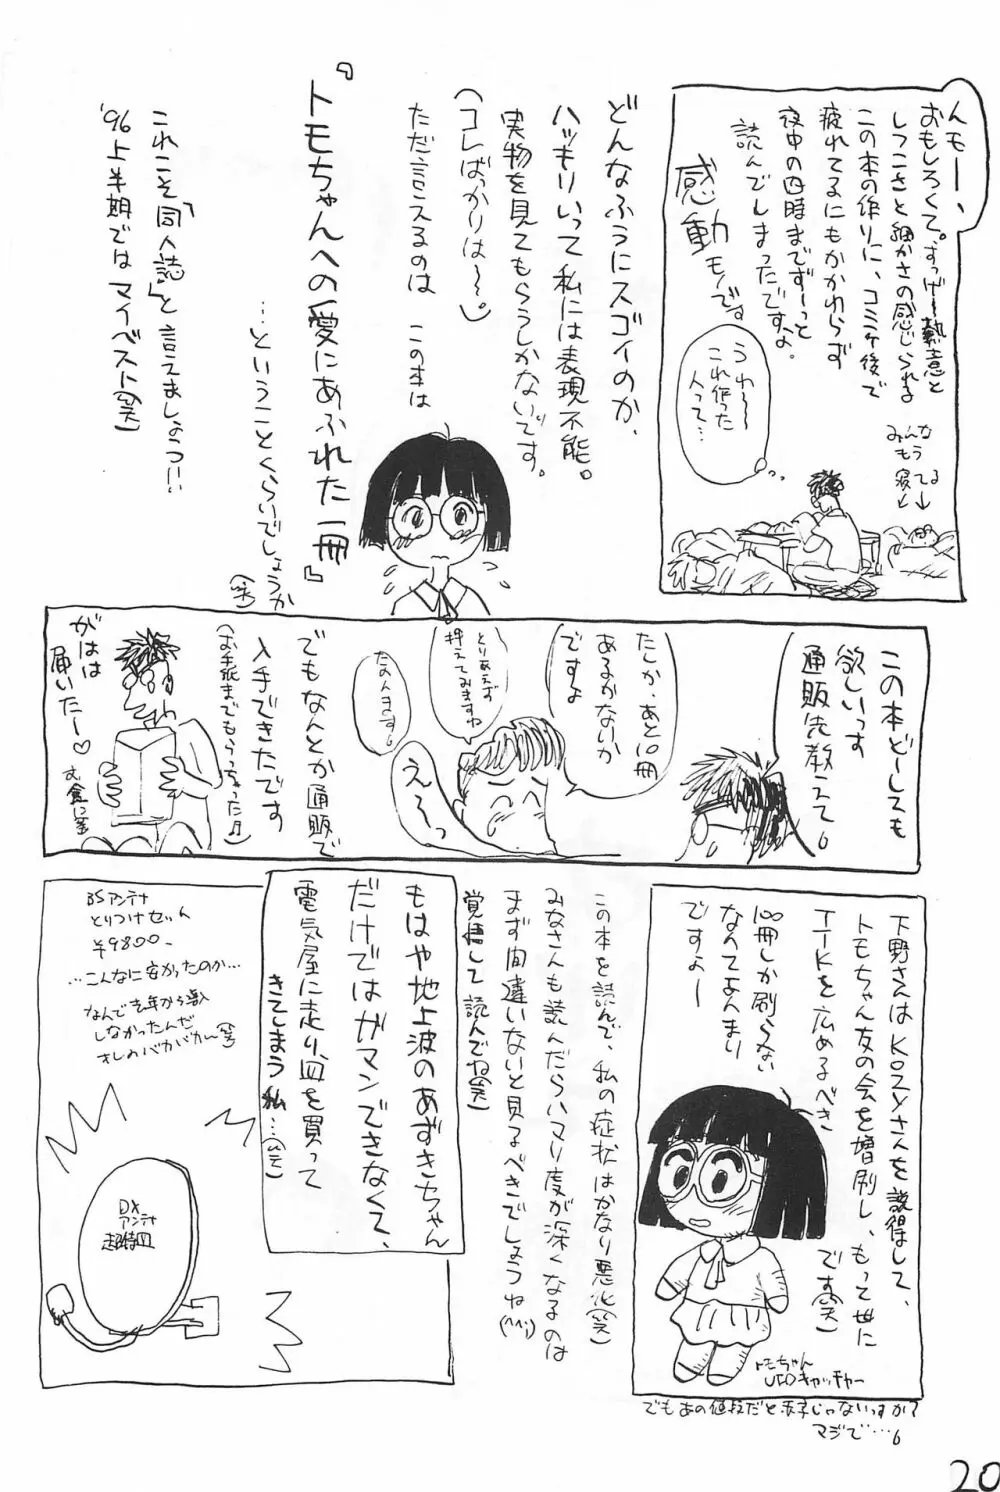 んモー、
おもしろくて。すっげー熱意と
しつこさと細かさの感じられる
この本の作りに、コミケ後で
疲れてるにもかかわらず
夜中の四時までずーっと
読んでしまったですよ。
感動モノです
うわ〜
これ作った
人って…
みんな
もう
寝てる
どんなふうにスゴイのか、
ハッキリいって私には表現不能。
実物を見てもらうしかないです。
(コレばっかりは〜。)
ただ言えるのは この本は
『トモちゃんへの愛にあふれた一冊』
…ということくらいでしょうか
(笑)
これこそ「同人誌」と言えましょうっ!!
'96上半期ではマイベスト(笑)
この本どーしても
欲しいっす
通販先教えて。
たしか、あと10冊
あるかないか
ですよ
とりあえず
押えてみますね
たのんます。
え〜っ
でもなんとか通販で
入手できたです
(お手紙までもらっちゃった♬)
がはは
届いたー♡
下野さんはKOZYさんを説得して、
トモちゃん友の会を増刷し、もって世に
TTKを広めるべき
です(笑)
100冊しか刷らない
なんてあんまり
ですよー
トモちゃん
UFOキャッチャー
でもあの値段だと赤字じゃないっすか?
マジで…。
この本を読んで、私の症状はかなり悪化(笑)
みなさんも読んだらハマり度が深くなるのは
まず間違いないと見るべきでしょうね(^^;)
覚悟して読んでね(笑)
もはや地上波のあずきちゃん
だけではガマンできなくて、
電気屋に走り、皿を買って
きてしまう私…(笑)
BSアンテナ
とりつけセット
¥9800-
…こんなに安かったのか…
なんで去年から導入
しなかったんだ
オレのバカバカ〜(笑)
DX
アンテナ
超特皿
20